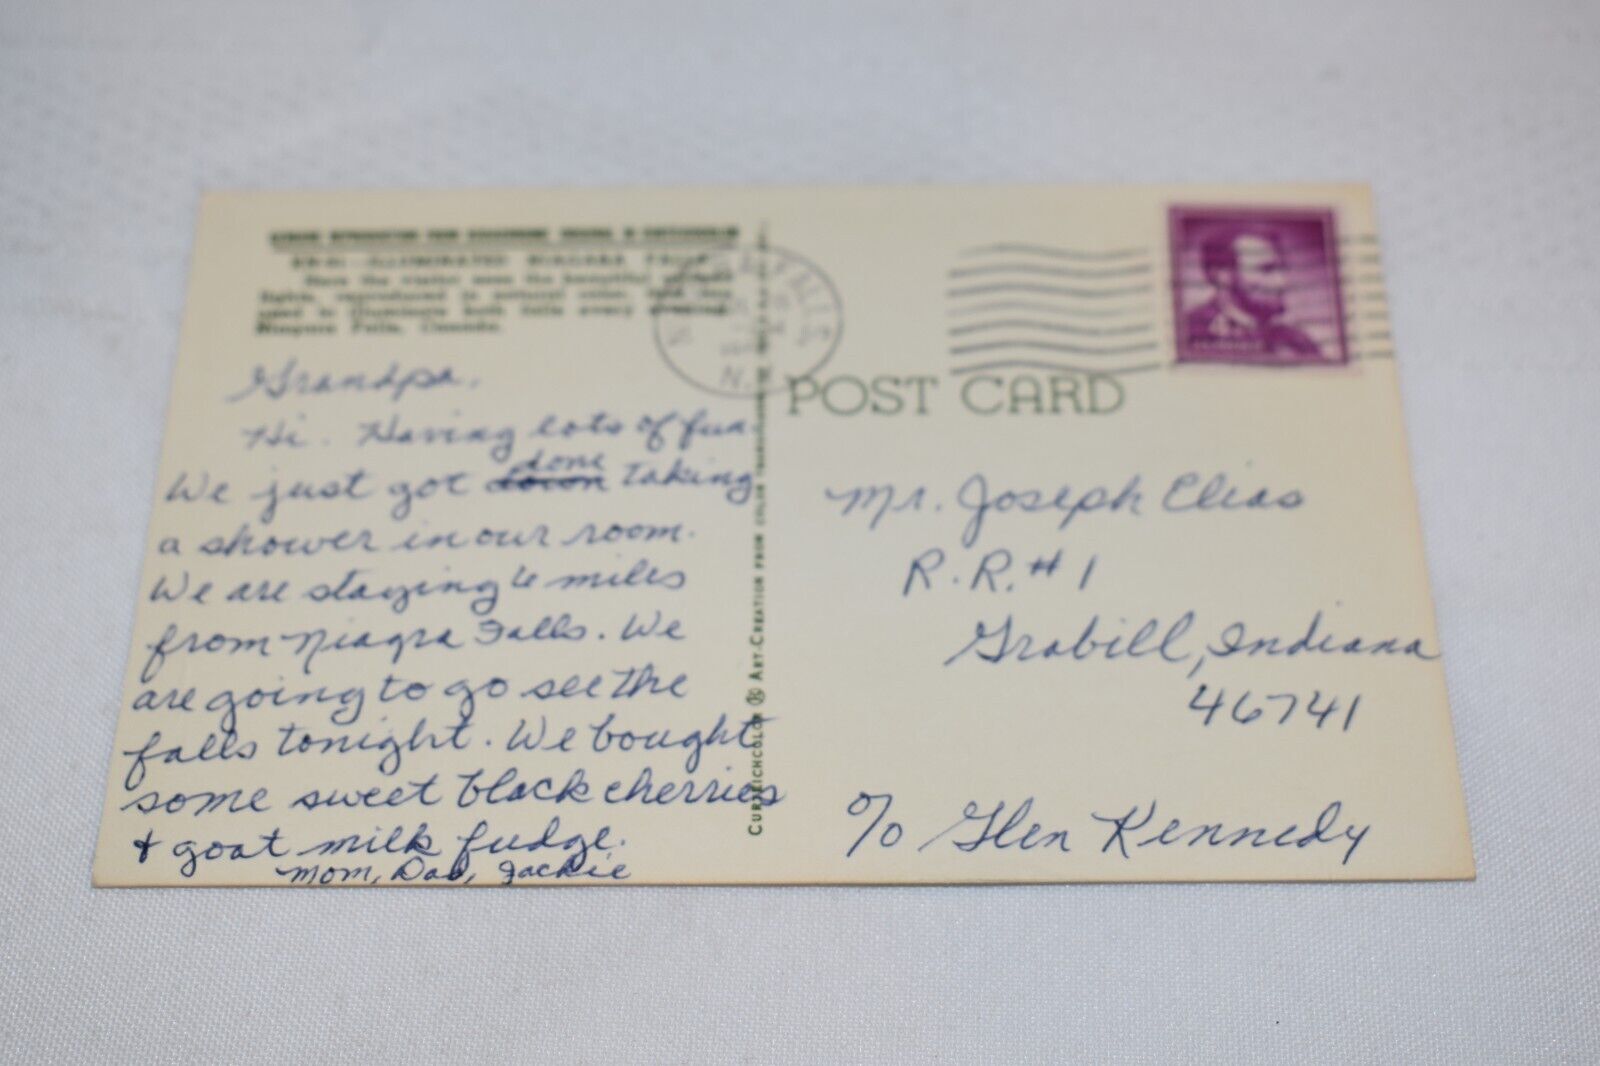 ILLUMINATED NIAGARA FALLS
Here the visitor sees the beautiful
lights, reproduced in natural color,
used to illuminate both falls every evening.
Niagara Falls, Canada.
Grandpa,
Hi. Having lots of fun.
We just got done taking
a shower in our room.
We are staying 6 miles
from Niagra Falls. We
are going to go see the
falls tonight. We bought
some sweet black cherries
& goat milk fudge.
Mom, Dad, Jackie
CURTEICHCOLOR ® ART-CREATION FROM COLOR
N.Y.
4¢
POST CARD
Mr. Joseph Elias
R.R. #1
Grabill, Indiana
46741
c/o Glen Kennedy